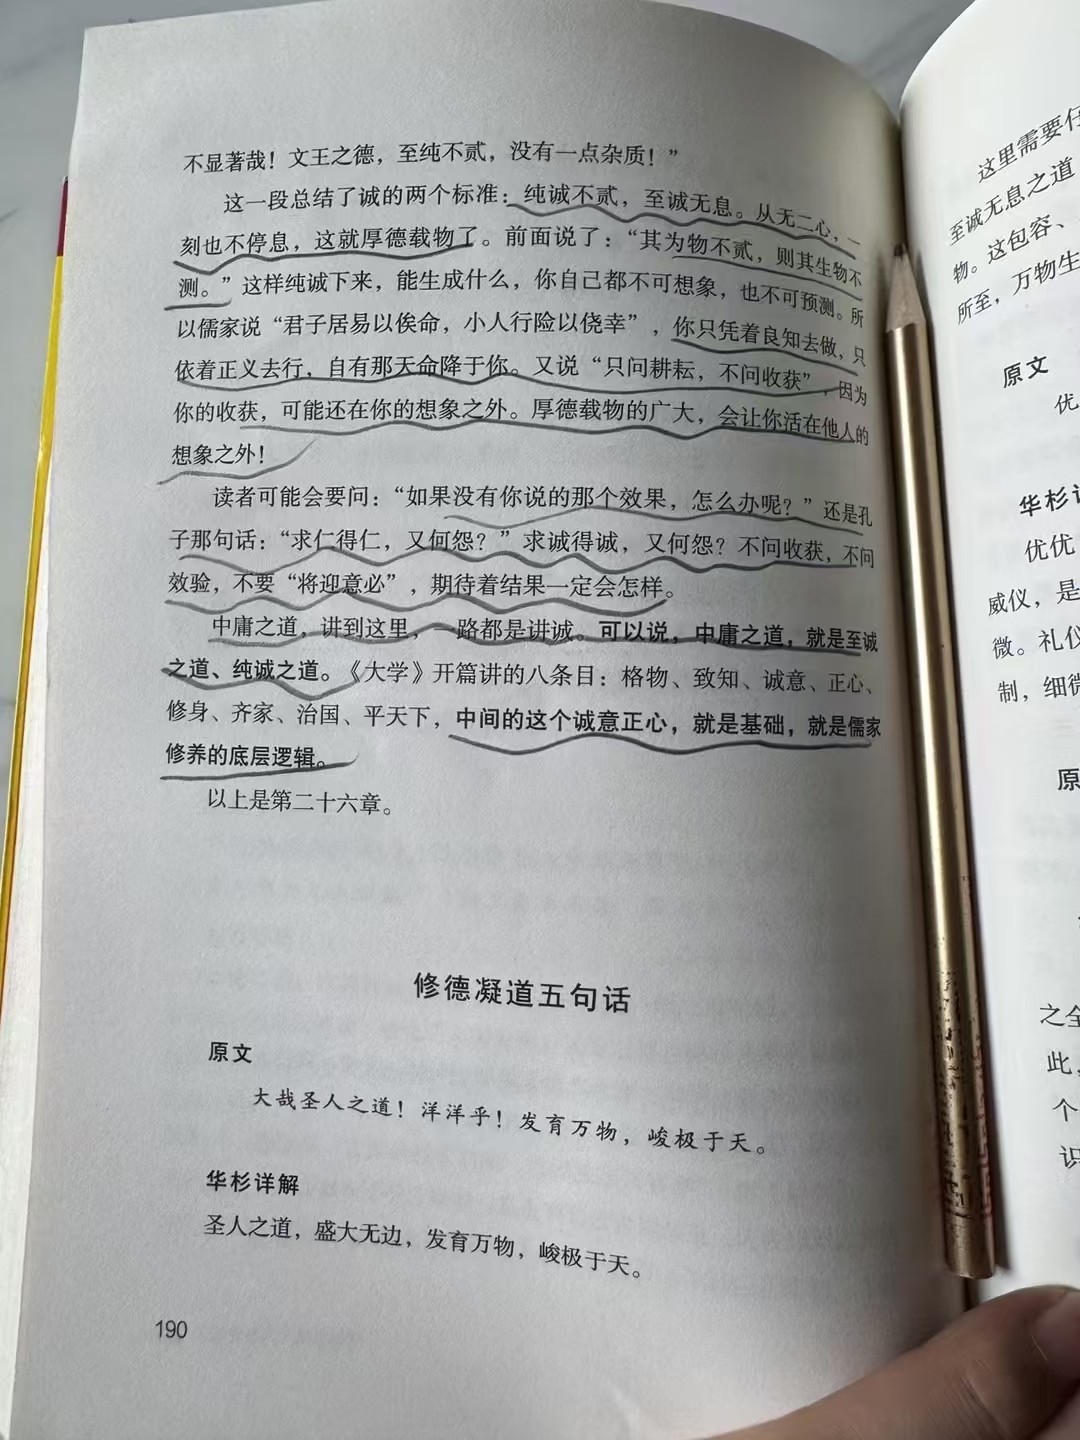 不显著哉！文王之德，至纯不贰，没有一点杂质！”
这一段总结了诚的两个标准：纯诚不贰，至诚无息。从无二心，一
刻也不停息，这就厚德载物了。前面说了：“其为物不贰，则其生物不
测。”这样纯诚下来，能生成什么，你自己都不可想象，也不可预测。所
以儒家说“君子居易以俟命，小人行险以侥幸”，你只凭着良知去做，只
依着正义去行，自有那天命降于你。又说“只问耕耘，不问收获”，因为
你的收获，可能还在你的想象之外。厚德载物的广大，会让你活在他人的
想象之外！
读者可能会要问：“如果没有你说的那个效果，怎么办呢？”还是孔
子那句话：“求仁得仁，又何怨？”求诚得诚，又何怨？不问收获，不问
效验，不要“将迎意必”，期待着结果一定会怎样。
中庸之道，讲到这里，一路都是讲诚。可以说，中庸之道，就是至诚
之道、纯诚之道。《大学》开篇讲的八条目：格物、致知、诚意、正心、
修身、齐家、治国、平天下，中间的这个诚意正心，就是基础，就是儒家
修养的底层逻辑。
以上是第二十六章。
修德凝道五句话
原文
大哉圣人之道！洋洋乎！发育万物，峻极于天。
华杉详解
圣人之道，盛大无边，发育万物，峻极于天。
190
这里需要仔
至诚无息之道
物。这包容、
所至，万物生
原文
优
华杉详
优优
威仪，是
微。礼仪
制，细微
原
之全
此，
个
识